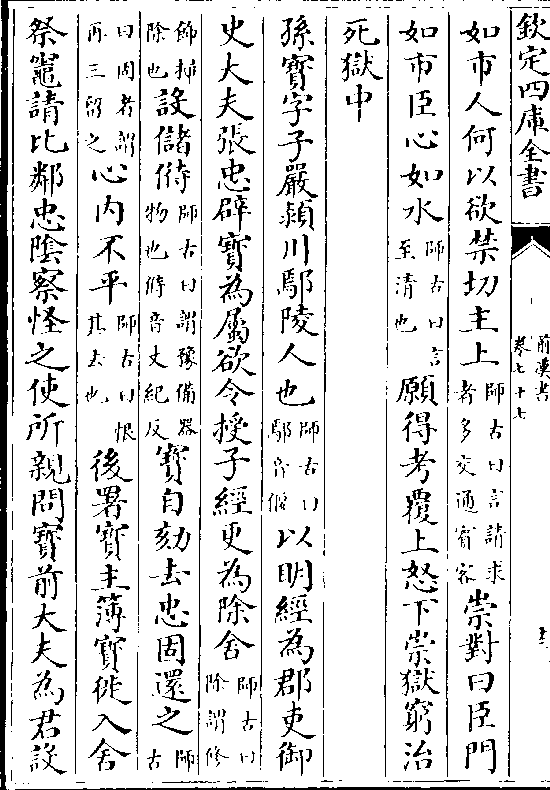 欽定四庫全書
前漢書
卷七十七
如市人何以欲禁切主上師古曰言請求者多交通賓客崇對曰臣門
如市臣心如水師古曰言至清也願得考覆上怒下崇獄窮治
死獄中
孫寶字子嚴潁川鄢陵人也師古曰鄢音偃以明經為郡吏御
史大夫張忠辟寶為屬欲令授子經更為除舍師古曰除謂修
飾掃除也設儲偫師古曰謂豫備器物也偫音丈紀反寶自劾去忠固還之師古
曰固者謂再三留之心内不平師古曰恨其去也後署寶主簿寶徙入舍
祭竈請比鄰忠隂察怪之使所親問寶前大夫為君設